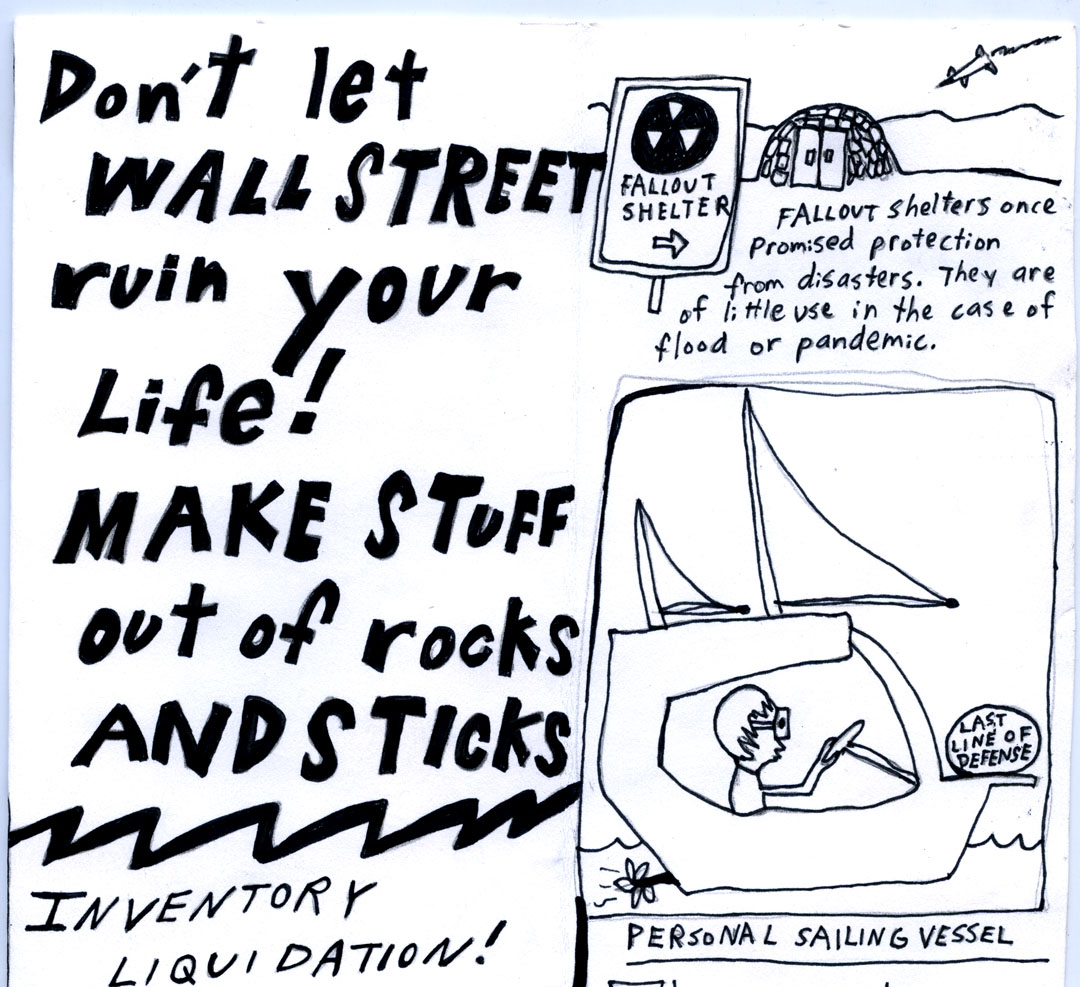 Don't let
WALL STREET
ruin your
Life!
MAKE STUFF
out of rocks
AND STICKS
INVENTORY
LIQUIDATION!
FALLOUT
SHELTER
FALLOUT shelters once
promised protection
from disasters. They are
of little use in the case of
flood or pandemic.
LAST
LINE OF
DEFENSE
PERSONAL SAILING VESSEL